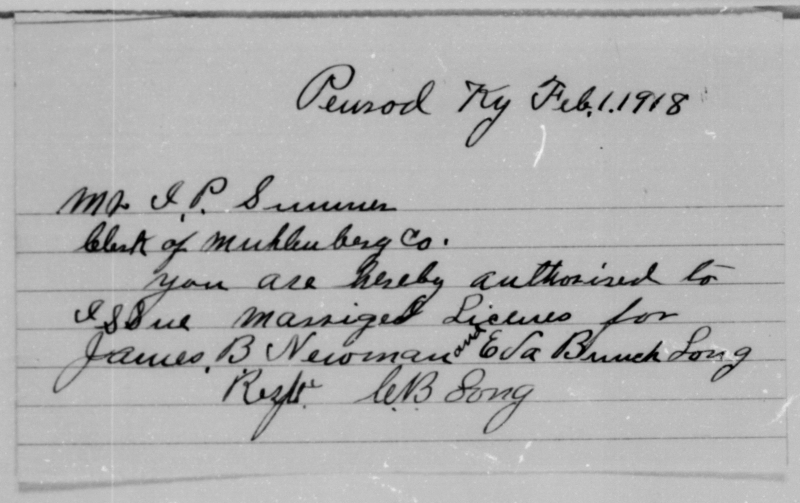 Penrod Ky Feb,1.1918
Mr I. P. Summer
Clerk of Muhlenberg Co.
you are hereby authorised to
issue marriged Licenes for
James, B Newman and Eda Bunch Long
Respt. C.B Long